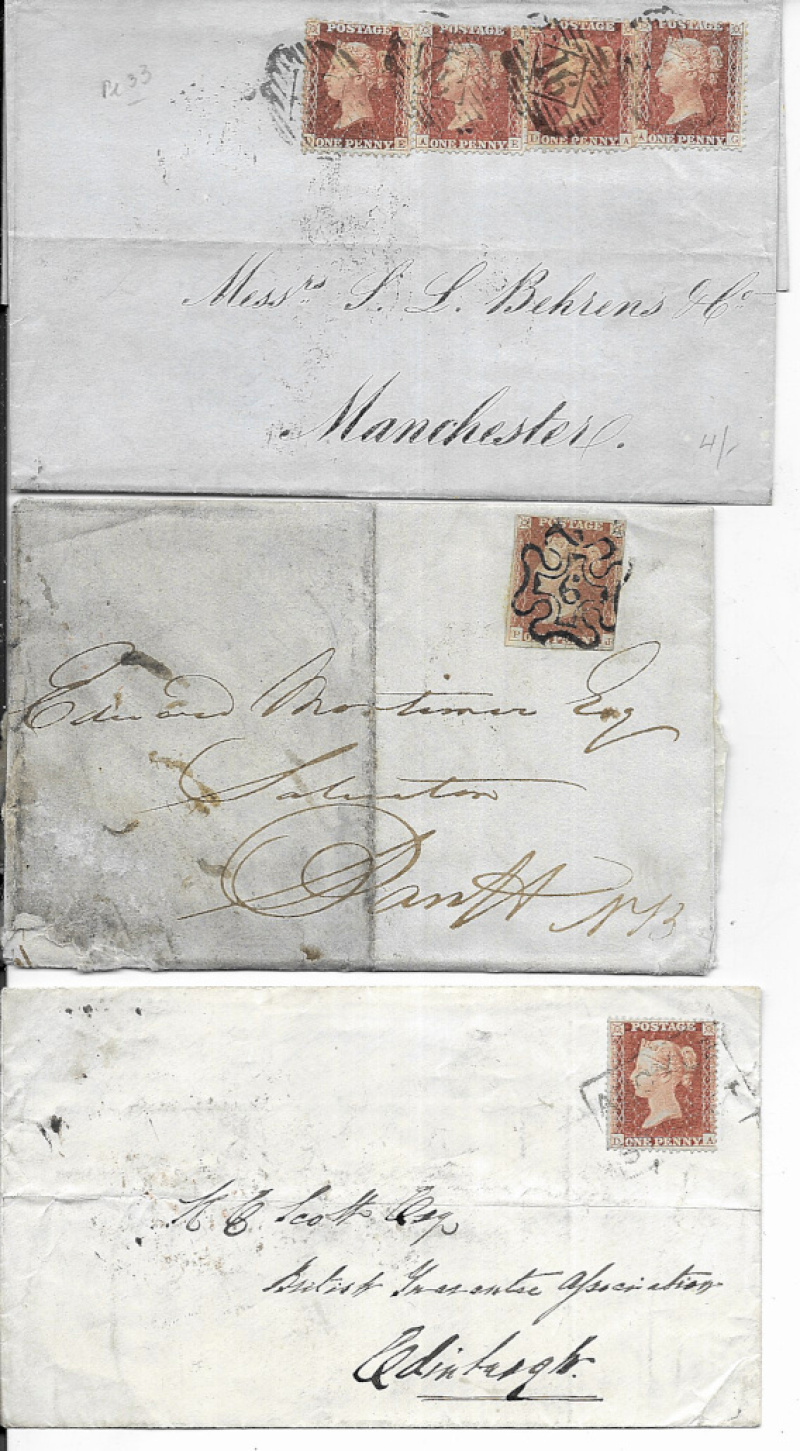 POSTAGE POSTAGE POSTAGE POSTAGE
ONE PENNY E A ONE PENNY E ONE PENNY A A ONE PENNY G
Pl 33
Messrs S. L. Behrens & Co
Manchester.
4/-
POSTAGE
6
P J
Edward Mortimer Esq
Banff N B
POSTAGE
D ONE PENNY A
H C Scott Esq
British Guarantee Association
Edinburgh.